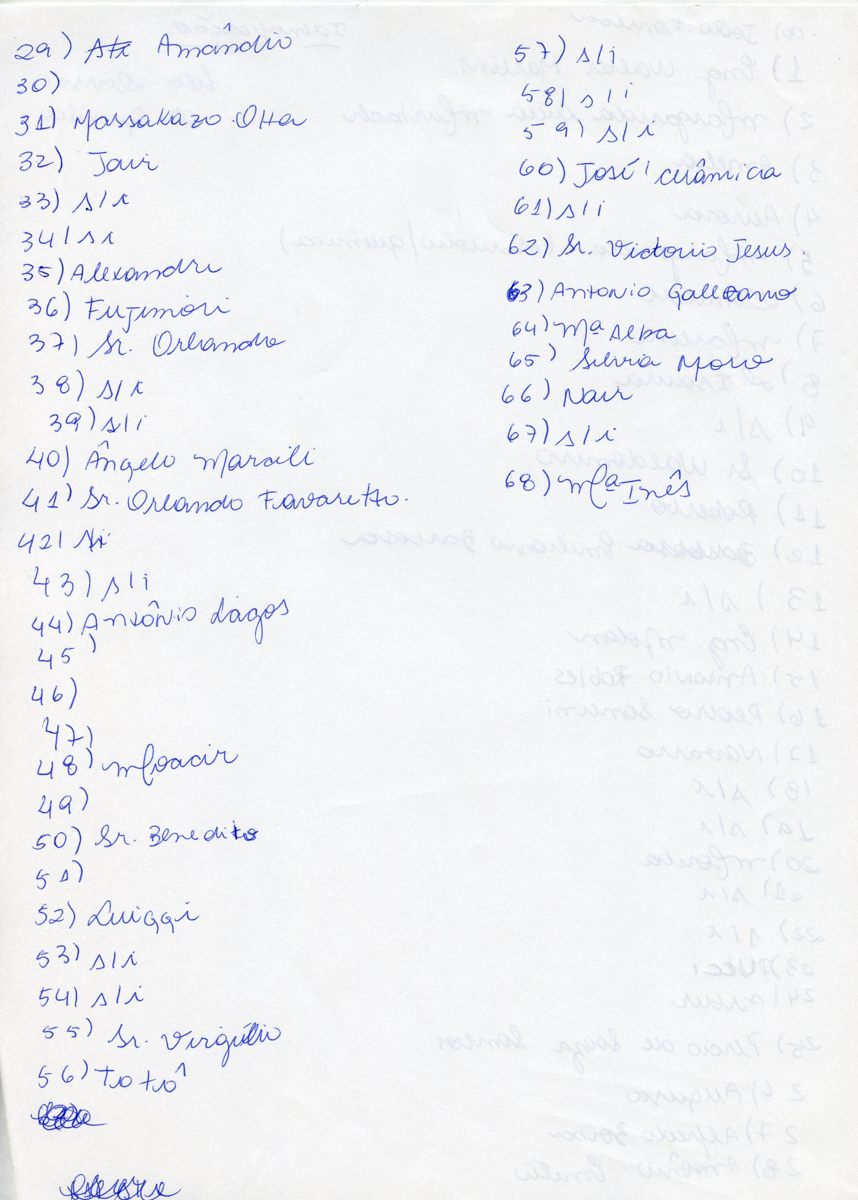 29) Amândio
30)
31) Massakazo Otta
32) Jair
33) s/i
34) si
35) Alexandre
36) Fujimori
37) Sr. Orlando
38) s/i
39) s/i
40) Ângelo Marsili
41) Sr. Orlando Favaretto.
42)
43) s/i
44) Antônio Lagos
45)
46)
47)
48) Moacir
49)
50) Sr. Benedito
51)
52) Luiggi
53) s/i
54) s/i
55) Sr. Virgílio
56) Totó
57) s/i
58) s/i
59) s/i
60) José / cerâmica
61) s/i
62) Sr. Victorio Jesus.
63) Antonio
64) Mª Alba
65) Silvia Moro
66) Nair
67) s/i
68) Mª Inês